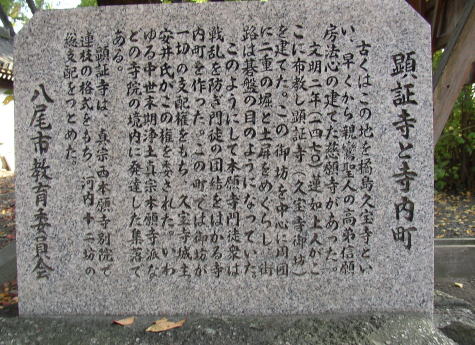 顕証寺と寺内町
古くはこの地を橘島久宝寺とい
い、早くから親鸞聖人の高弟信願
房法心の建てた慈願寺があった。
文明二年(一四七〇)蓮如上人がこ
こに布教し顕証寺(久宝寺御坊)
を建てた。この御坊を中心に周囲
に二重の堀と土居をめぐらし、街
路は碁盤の目のようになっていた。
このようにして本願寺門徒衆は
戦乱を防ぎ門徒の団結をはかる寺
内町を作った。この町では御坊が
一切の支配権をもち、久宝寺城主
安井氏がこの権を委された。いわ
ゆる中世末期浄土真宗本願寺派な
どの寺院の境内に発達した集落で
ある。
顕証寺は、真宗西本願寺別院で
連枝の格式をもち、河内十二坊の
総支配をつとめた。
八尾市教育委員会